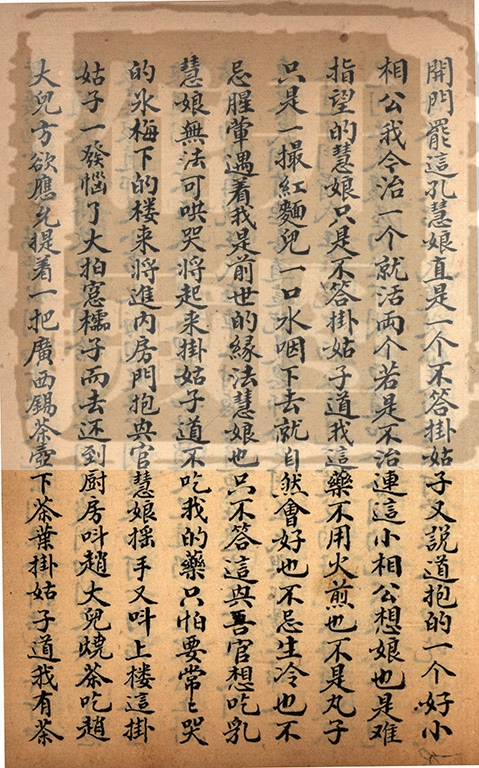 開門罷這孔慧娘直是一个不答掛姑子又說道抱的一个好小
相公我今治一个就活両个若是不治連這小相公想娘也是难
指望的慧娘只是不答掛姑子道我這藥不用火煎也不是丸子
只是一撮紅麵兒一口水咽下去就自然會好也不忌生冷也不
忌腥葷遇着我是前世的縁法慧娘也只不答這與吾官想吃乳
慧娘無法可哄哭將起来掛姑子道不吃我的藥只怕要常〻哭
的氷梅下的楼来將進內房門抱與官慧娘摇手又呌上楼這掛
姑子一發惱了大拍窓槅子而去还到厨房呌趙大兒燒茶吃趙
大兒方欲應允提着一把廣西錫茶壺下茶葉掛姑子道我有茶